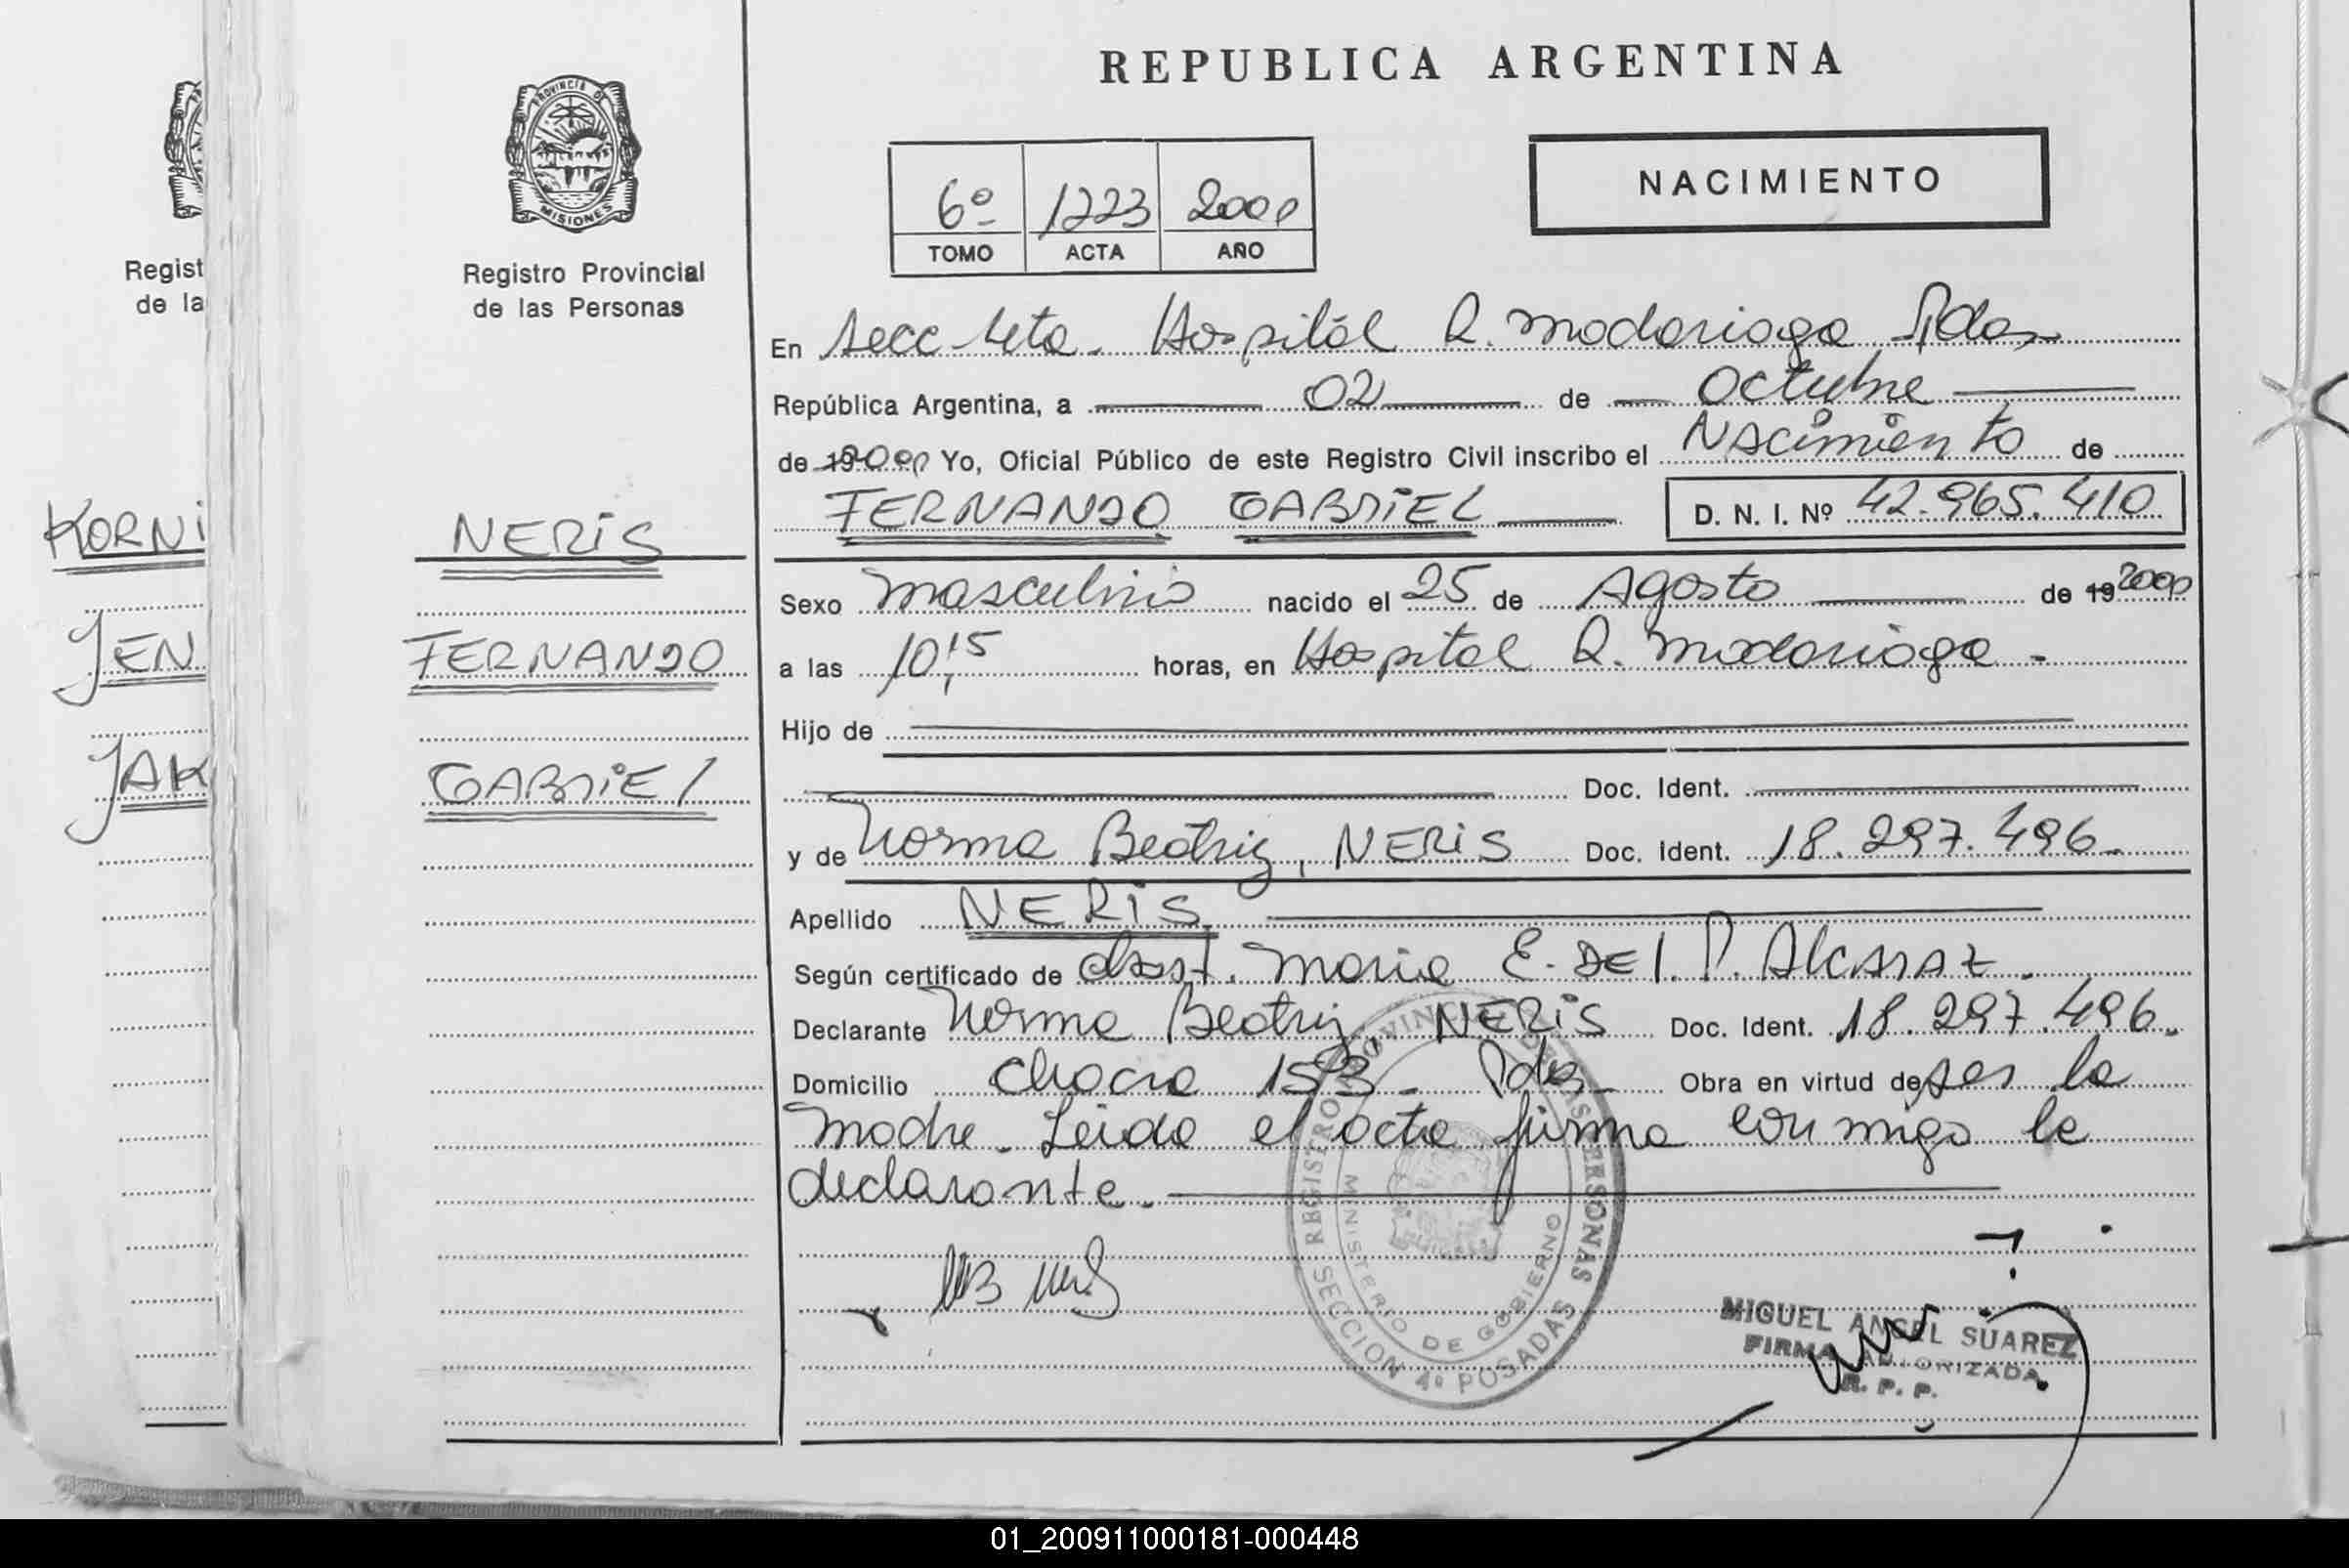 REPUBLICA ARGENTINA
PROVINCIA DE
MISIONES
Regist
de la
Registro Provincial
de las Personas
6º 1223 2000
TOMO ACTA AÑO
NACIMIENTO
En Secc 4ta. Hospital R. Madariaga Pdas
República Argentina, a 02 de Octubre
de 192000 Yo, Oficial Público de este Registro Civil inscribo el Nacimiento de
FERNANDO GABRIEL D. N. I. Nº 42.965.410
KORNI
JEN
JAK
NERIS
FERNANDO
GABRIEL
Sexo masculino nacido el 25 de Agosto de 19 2000
a las 10,15 horas, en Hospital R. Madariaga -
Hijo de
Doc. Ident.
y de Norma Beatriz, NERIS Doc. Ident. 18.297.496.
Apellido NERIS
Según certificado de Obst. Maria E. DEL. P. Alcaraz.
Declarante Norma Beatriz, NERIS Doc. Ident. 18.297.496.
Domicilio Chacra 153 - Pdas - Obra en virtud de ser la
madre. Leida el acta firma conmigo la
declarante.
REGISTRO PROVINCIAL DE LAS PERSONAS
MINISTERIO DE GOBIERNO
SECCION 4º POSADAS
MIGUEL ANGEL SUAREZ
FIRMA AUTORIZADA
R. P. P.
01_200911000181-000448